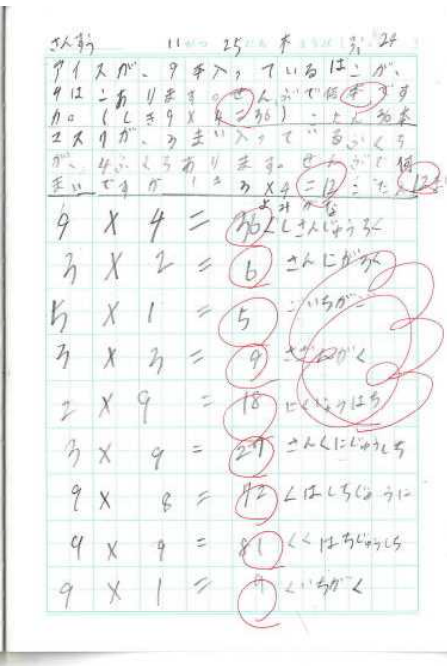 さんすう 11がつ 25にち 木
アイスが、9本入っているはこが、
4はこあります。ぜんぶで何本です
か。(しき9×4=36)こたえ36本
コスりが、3まい入っているふくろ
が、4ふくろあります。ぜんぶで何
まいですか しき3×4=12 こたえ12まい
よみかな
9×4=36 くしさんじゅうろく
3×2=6 さんにがろく
5×1=5 ごいちがご
3×3=9 さざんがく
2×9=18 にくじゅうはち
3×9=27 さんくにじゅうしち
9×8=72 くはしちじゅうに
9×9=81 くくはちじゅういち
9×1=9 くいちがく